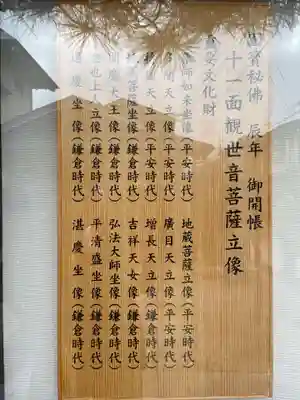 國寳秘佛 辰年 御開帳
十一面觀世音菩薩立像
重要文化財
薬師如来坐像(平安時代) 地蔵菩薩立像(平安時代)
多聞天立像(平安時代) 廣目天立像(平安時代)
天立像(平安時代) 増長天立像(平安時代)
菩薩坐像(鎌倉時代) 吉祥天女像(鎌倉時代)
閻魔大王像(鎌倉時代) 弘法大師坐像(鎌倉時代)
空也上人立像(鎌倉時代) 平清盛坐像(鎌倉時代)
運慶坐像(鎌倉時代) 湛慶坐像(鎌倉時代)